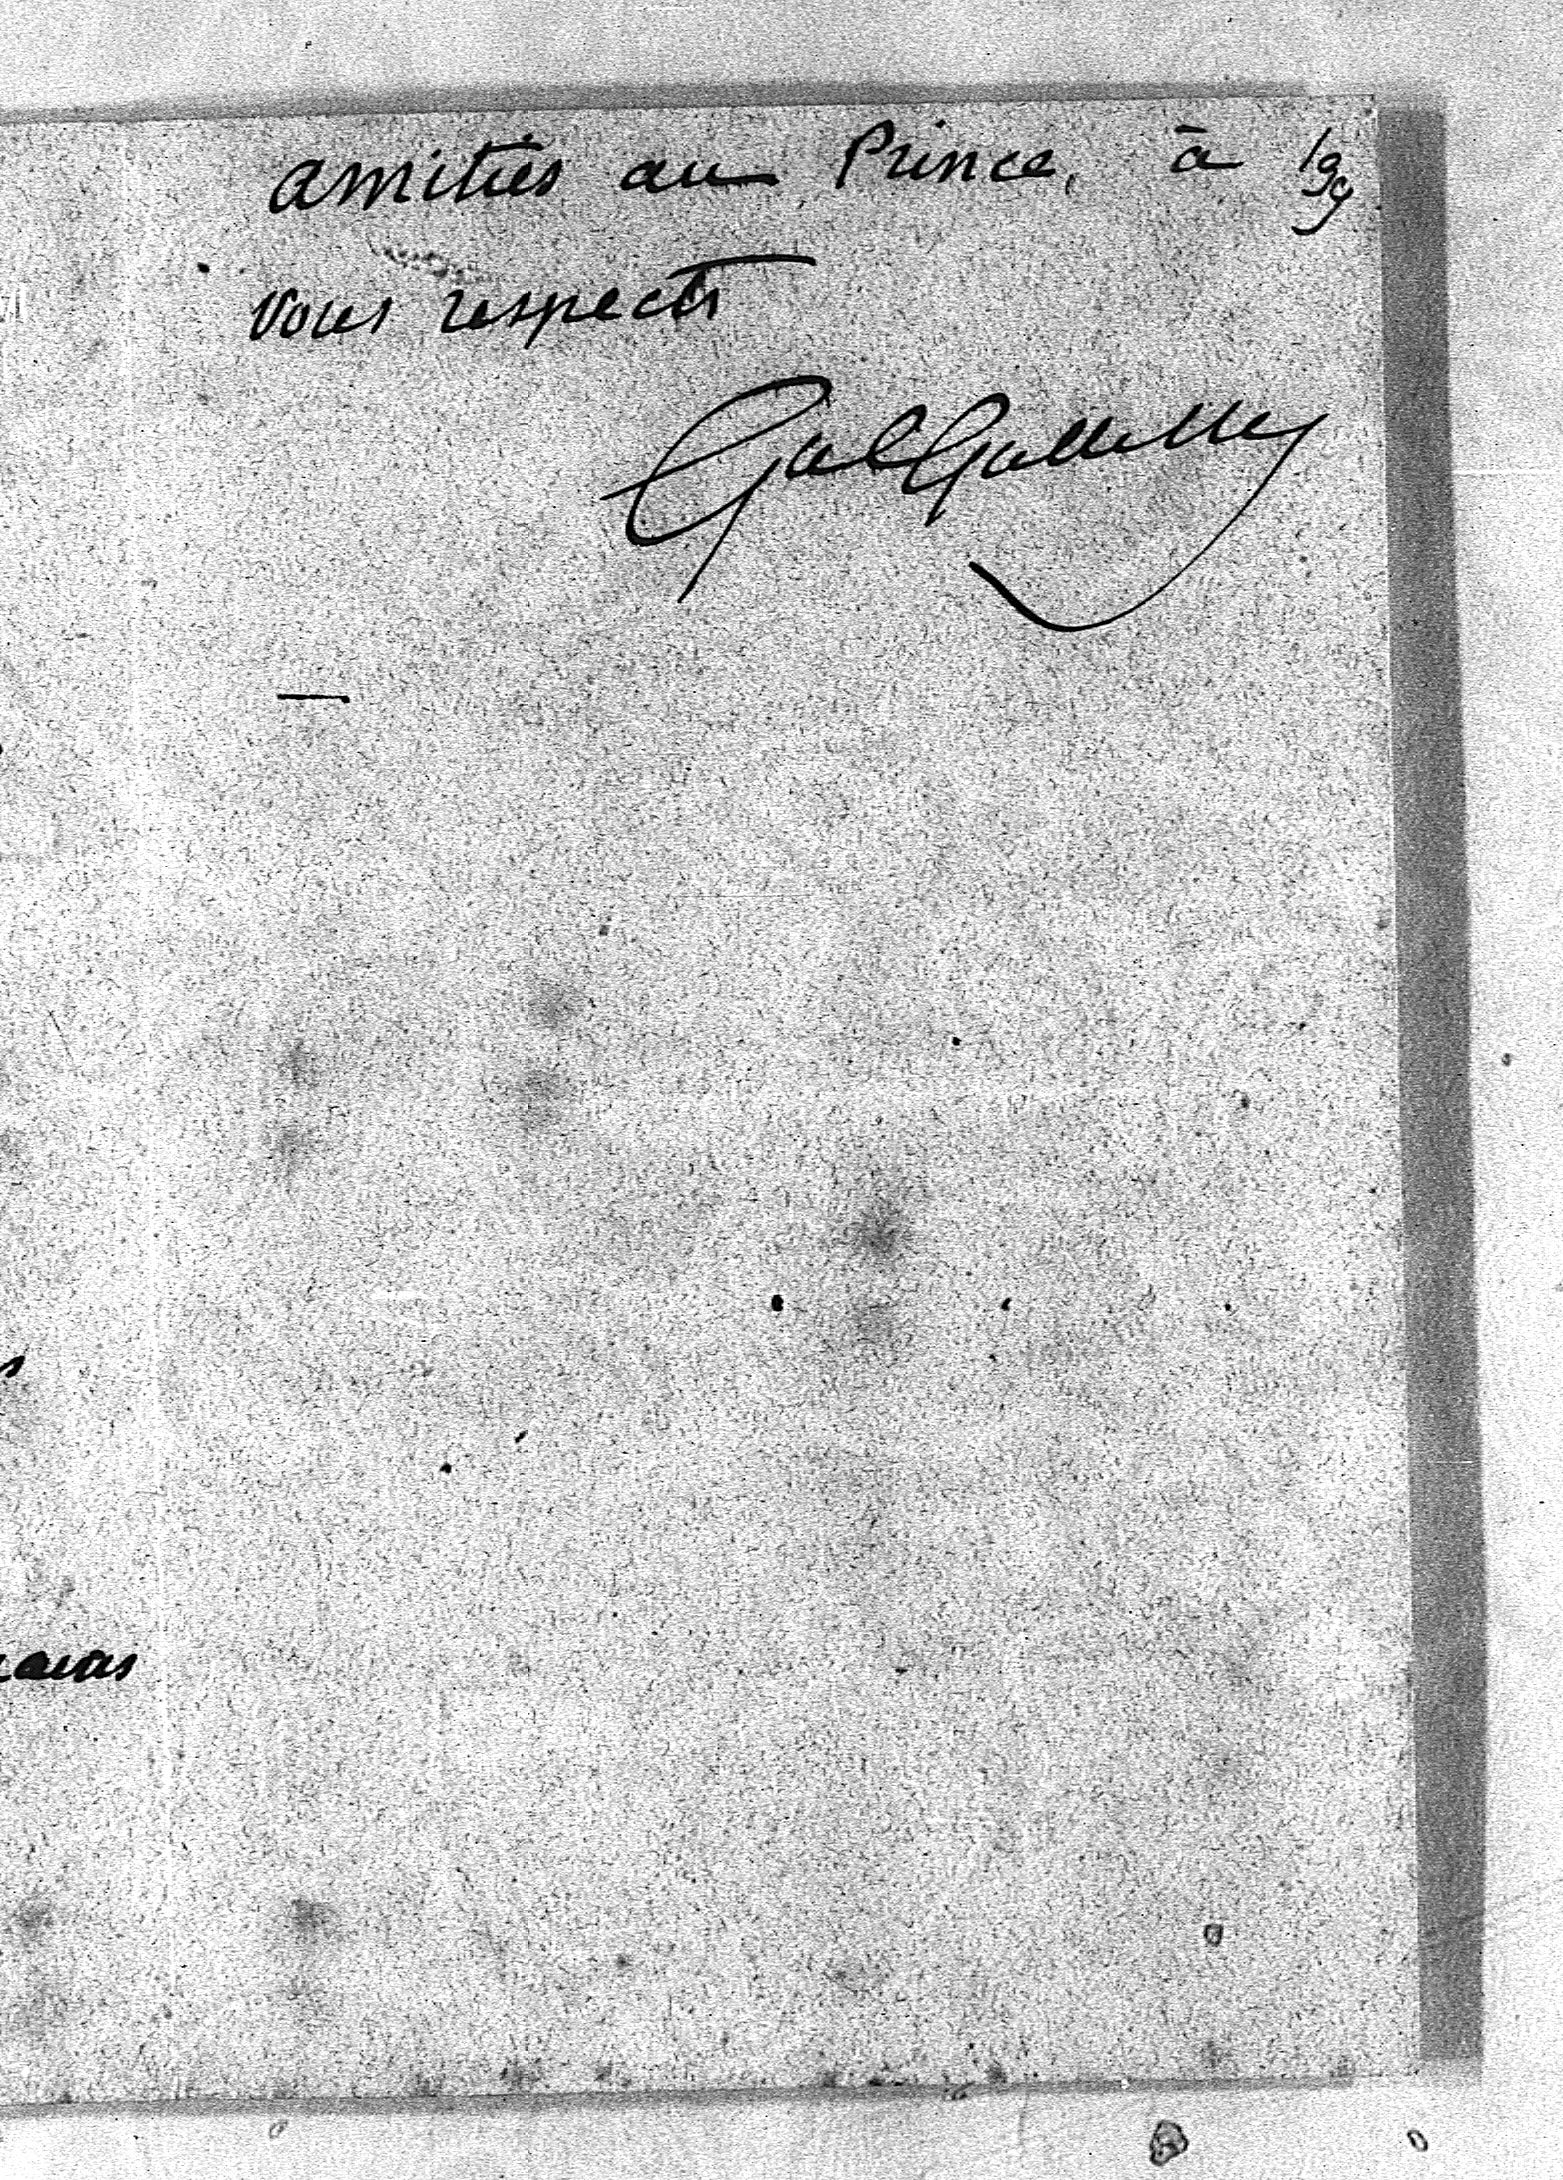 amitiés au Prince, à 199
vous respects
Gal Gallieni